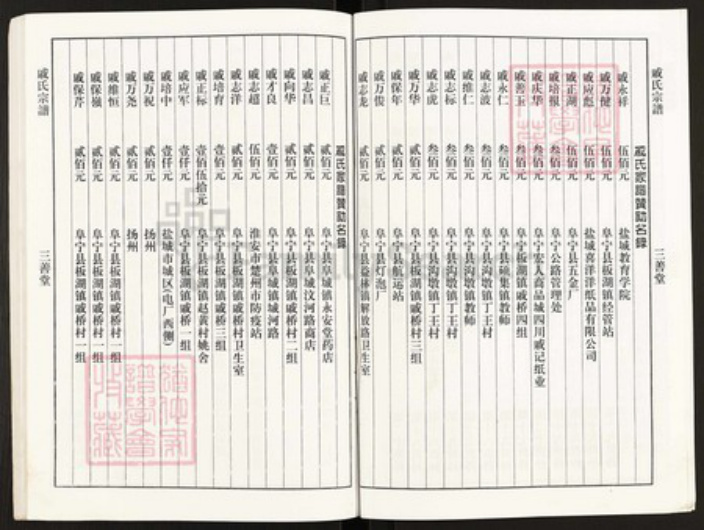 戚氏宗譜
三善堂
戚氏家譜贊助名錄
戚永祥 伍佰元 盐城教育学院
戚万健 伍佰元 阜宁县板湖镇经管站
戚应彪 伍佰元 盐城喜洋洋纸品有限公司
戚正湖 伍佰元 阜宁县五金厂
戚培根 叁佰元 阜宁公路管理处
戚庆华 叁佰元 阜宁宏人商品城四川戚记纸业
戚善玉 叁佰元 阜宁板湖镇戚桥四组
戚永仁 叁佰元 阜宁县硕集镇教师
戚志波 叁佰元 阜宁县沟墩镇丁王村
戚维仁 叁佰元 阜宁县沟墩镇教师
戚志标 叁佰元 阜宁县沟墩镇丁王村
戚志虎 叁佰元 阜宁县沟墩镇丁王村
戚万华 贰佰元 阜宁县板湖镇戚桥村三组
戚保年 贰佰元 阜宁县航运站
戚万俊 贰佰元 阜宁县灯泡厂
戚志龙 贰佰元 阜宁县益林镇解放路卫生室
戚正巨 贰佰元 阜宁县阜城镇永安堂药店
戚志昌 贰佰元 阜宁县阜城汶河路商店
戚向华 贰佰元 阜宁县板湖镇戚桥村二组
戚才良 壹佰元 阜宁县阜城镇城河路
戚志超 伍佰元 淮安市楚州市防疫站
戚志洋 贰佰元 阜宁县板湖镇戚桥村卫生室
戚培育 壹佰元 阜宁县板湖镇戚桥三组
戚正标 壹佰伍拾元 阜宁县板湖镇赵黄村姚舍
戚应军 壹仟元 阜宁县板湖镇戚桥一组
戚培中 壹仟元 盐城市城区(电厂西侧)
戚万祝 贰佰元 扬州
戚万尧 贰佰元 扬州
戚维恒 贰佰元 阜宁县板湖镇戚桥村一组
戚保嶺 贰佰元 阜宁县板湖镇戚桥村一组
戚保芹 贰佰元 阜宁县板湖镇戚桥村一组
戚氏宗譜
三善堂